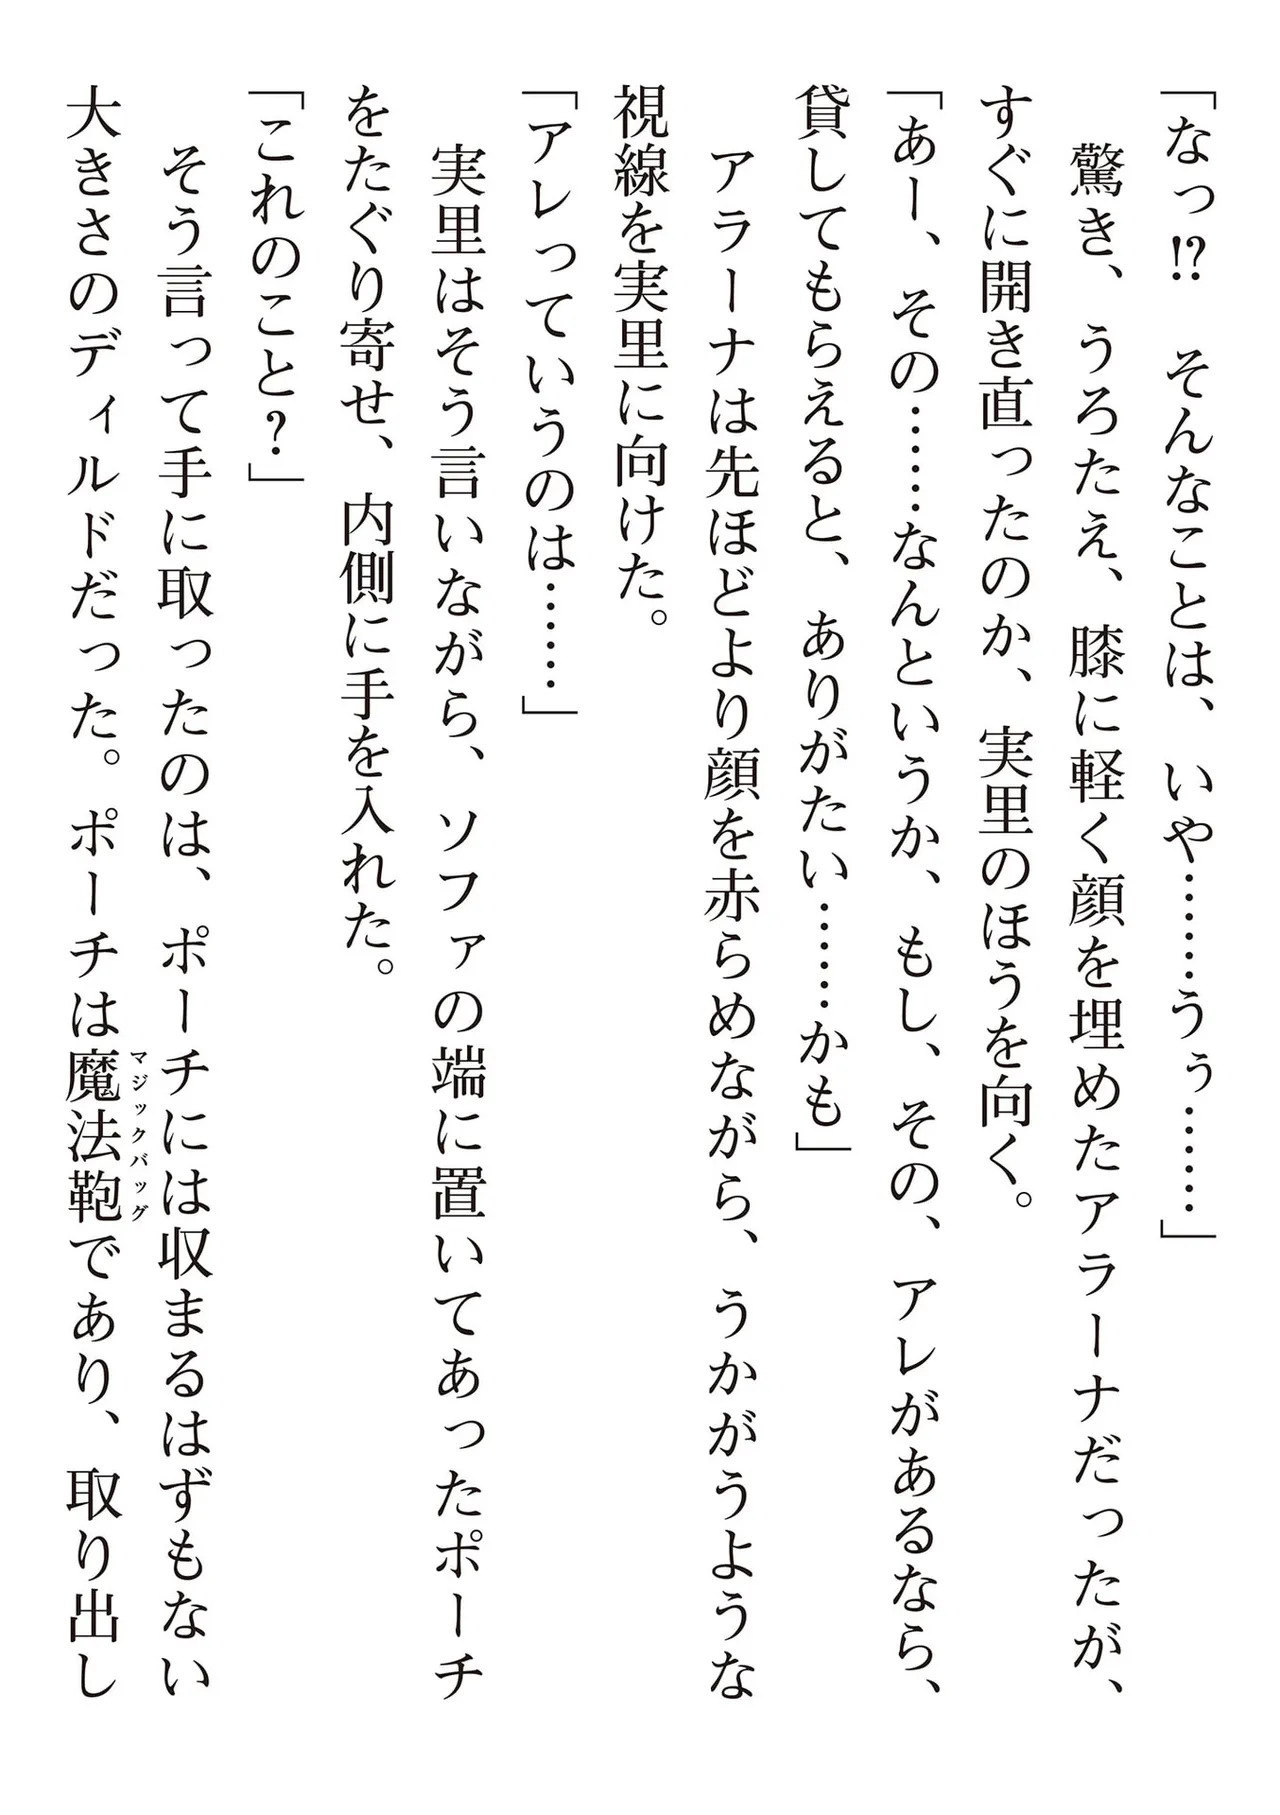 「なっ!?　そんなことは、いや………うぅ………」
　驚き、うろたえ、膝に軽く顔を埋めたアラーナだったが、
すぐに開き直ったのか、実里のほうを向く。
「あー、その………なんというか、もし、その、アレがあるなら、
貸してもらえると、ありがたい………かも」
　アラーナは先ほどより顔を赤らめながら、うかがうような
視線を実里に向けた。
「アレっていうのは………」
　実里はそう言いながら、ソファの端に置いてあったポーチ
をたぐり寄せ、内側に手を入れた。
「これのこと？」
　そう言って手に取ったのは、ポーチには収まるはずもない
マジックバッグ
大きさのディルドだった。ポーチは魔法鞄であり、取り出し